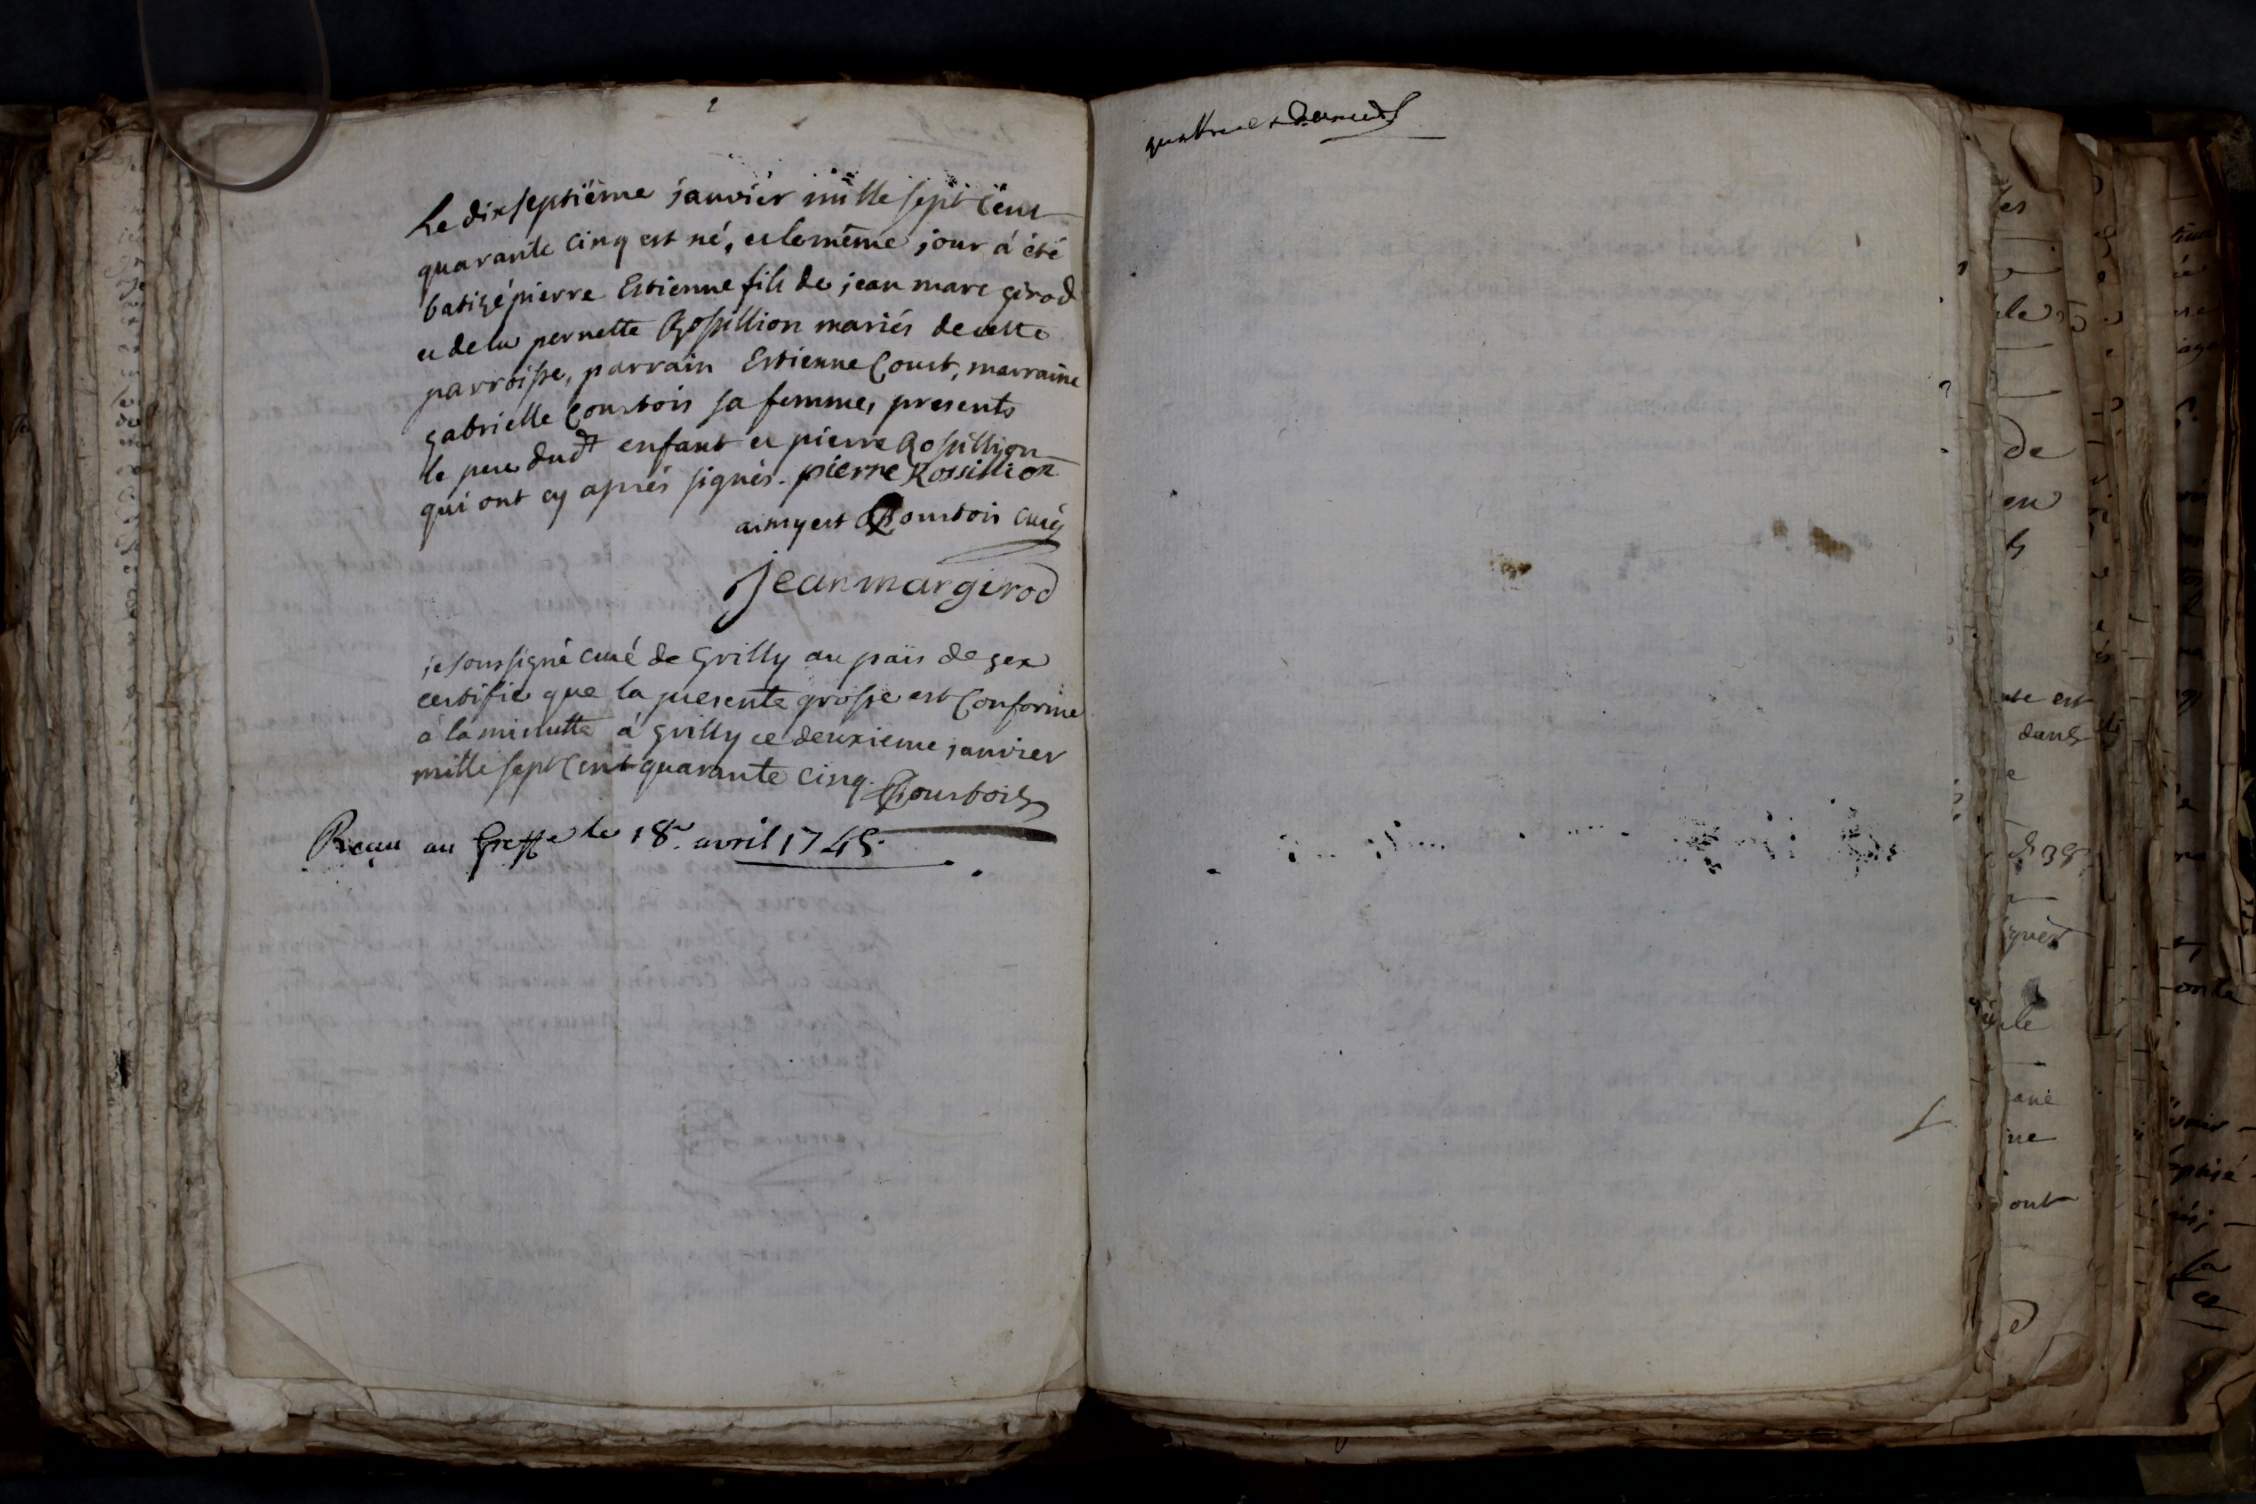 Le dixseptiême janvier mille sept Cent
quarante cinq est né, et le même jour á été
batisé pierre Estienne fils de jean marc girod
et de la pernette Rossillion mariés de cette
parroisse, parrain Estienne Court, marraine
gabrielle Courtois sa femme, presents
le pere dudt enfant et pierre Rossillion
qui ont cy aprés signés. pierre Rossillion
ainsy est Courtois curé
jean mar girod
je soussigné curé de Grilly au païs de gex
certifie que la presente grosse est Conforme
á la minutte á Grilly ce deuxieme janvier
mille sept Cent quarante cinq. Courtois
Reçu au Greffe le 18e. avril 1745.
quattre et dernier